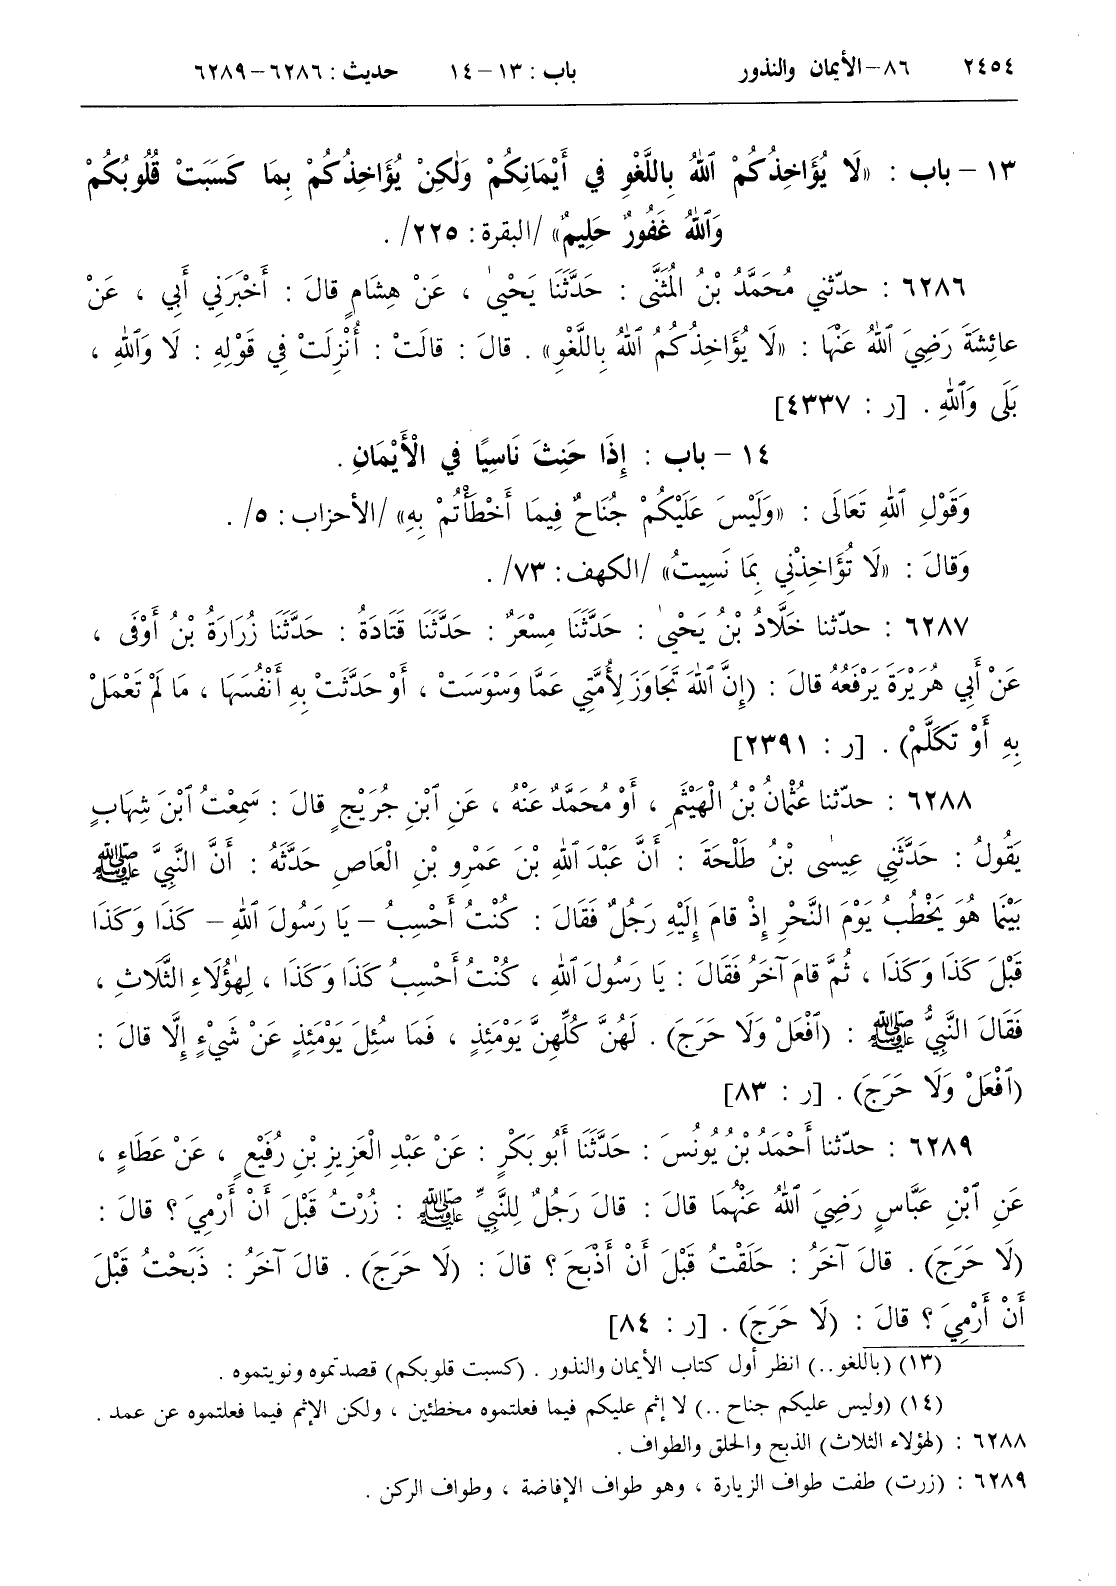 ٢٤٥٤ ٨٦-الأيمان والنذور باب : ١٣-١٤ حديث : ٦٢٨٦-٦٢٨٩
١٣ - باب : «لَا يُؤَاخِذُكُمْ ٱللهُ بِاللَّغْوِ في أَيْمَانِكُمْ وَلٰكِنْ يُؤَاخِذُكُمْ بِمَا كَسَبَتْ قُلُوبُكُمْ
وَٱللهُ غَفُورٌ حَلِيمٌ» /البقرة : ٢٢٥/ .
٦٢٨٦ : حدّثني مُحَمَّدُ بْنُ المُثَنَّى : حَدَّثَنَا يَحْيىٰ ، عَنْ هِشَامٍ قالَ : أَخْبَرَنِي أَبِي ، عَنْ
عائِشَةَ رَضِيَ ٱللهُ عَنْهَا : «لَا يُؤَاخِذُكُمُ ٱللهُ بِاللَّغْوِ» . قالَ : قالَتْ : أُنْزِلَتْ فِي قَوْلِهِ : لَا وَٱللهِ ،
بَلَى وَٱللهِ . [ر : ٤٣٣٧]
١٤ - باب : إِذَا حَنِثَ نَاسِيًا في الْأَيْمَانِ .
وَقَوْلِ ٱللهِ تَعَالَى : «وَلَيْسَ عَلَيْكُمْ جُنَاحٌ فِيمَا أَخْطَأْتُمْ بِهِ» /الأحزاب : ٥/ .
وَقالَ : «لَا تُؤَاخِذْنِي بِمَا نَسِيتُ» /الكهف : ٧٣/ .
٦٢٨٧ : حدّثنا خَلَّادُ بْنُ يَحْيىٰ : حَدَّثَنَا مِسْعَرٌ : حَدَّثَنَا قَتَادَةُ : حَدَّثَنَا زُرَارَةُ بْنُ أَوْفَى ،
عَنْ أَبِي هُرَيْرَةَ يَرْفَعُهُ قالَ : (إِنَّ ٱللهَ تَجَاوَزَ لِأُمَّتِي عَمَّا وَسْوَسَتْ ، أَوْ حَدَّثَتْ بِهِ أَنْفُسَهَا ، مَا لَمْ تَعْمَلْ
بِهِ أَوْ تَكَلَّمْ) . [ر : ٢٣٩١]
٦٢٨٨ : حدّثنا عُثْمانُ بْنُ الْهَيْثَمِ ، أَوْ مُحَمَّدٌ عَنْهُ ، عَنِ ٱبْنِ جُرَيْجٍ قالَ : سَمِعْتُ ٱبْنَ شِهَابٍ
يَقُولُ : حَدَّثَنِي عِيسٰى بْنُ طَلْحَةَ : أَنَّ عَبْدَ ٱللهِ بْنَ عَمْرِو بْنِ الْعَاصِ حَدَّثَهُ : أَنَّ النَّبِيَّ ﷺ
بَيْنَمَا هُوَ يَخْطُبُ يَوْمَ النَّحْرِ إِذْ قامَ إِلَيْهِ رَجُلٌ فَقَالَ : كُنْتُ أَحْسِبُ – يَا رَسُولَ ٱللهِ – كَذَا وَكَذَا
قَبْلَ كَذَا وَكَذَا ، ثُمَّ قامَ آخَرُ فَقَالَ : يَا رَسُولَ ٱللهِ ، كُنْتُ أَحْسِبُ كَذَا وَكَذَا ، لِهٰؤُلَاءِ الثَّلَاثِ ،
فَقَالَ النَّبِيُّ ﷺ : (ٱفْعَلْ وَلَا حَرَجَ) . لَهُنَّ كُلِّهِنَّ يَوْمَئِذٍ ، فَمَا سُئِلَ يَوْمَئِذٍ عَنْ شَيْءٍ إِلَّا قالَ :
(ٱفْعَلْ وَلَا حَرَجَ) . [ر : ٨٣]
٦٢٨٩ : حدّثنا أَحْمَدُ بْنُ يُونُسَ : حَدَّثَنَا أَبُو بَكْرٍ : عَنْ عَبْدِ الْعَزِيزِ بْنِ رُفَيْعٍ ، عَنْ عَطَاءٍ ،
عَنِ ٱبْنِ عَبَّاسٍ رَضِيَ ٱللهُ عَنْهُمَا قالَ : قالَ رَجُلٌ لِلنَّبِيِّ ﷺ : زُرْتُ قَبْلَ أَنْ أَرْمِيَ ؟ قالَ :
(لَا حَرَجَ) . قالَ آخَرُ : حَلَقْتُ قَبْلَ أَنْ أَذْبَحَ ؟ قالَ : (لَا حَرَجَ) . قالَ آخَرُ : ذَبَحْتُ قَبْلَ
أَنْ أَرْمِيَ ؟ قالَ : (لَا حَرَجَ) . [ر : ٨٤]
(١٣) (باللغو..) انظر أول كتاب الأيمان والنذور . (كسبت قلوبكم) قصدتموه ونويتموه .
(١٤) (وليس عليكم جناح ..) لا إثم عليكم فيما فعلتموه مخطئين ، ولكن الإثم فيما فعلتموه عن عمد .
٦٢٨٨ : (لهؤلاء الثلاث) الذبح والحلق والطواف .
٦٢٨٩ : (زرت) طفت طواف الزيارة ، وهو طواف الإفاضة ، وطواف الركن .